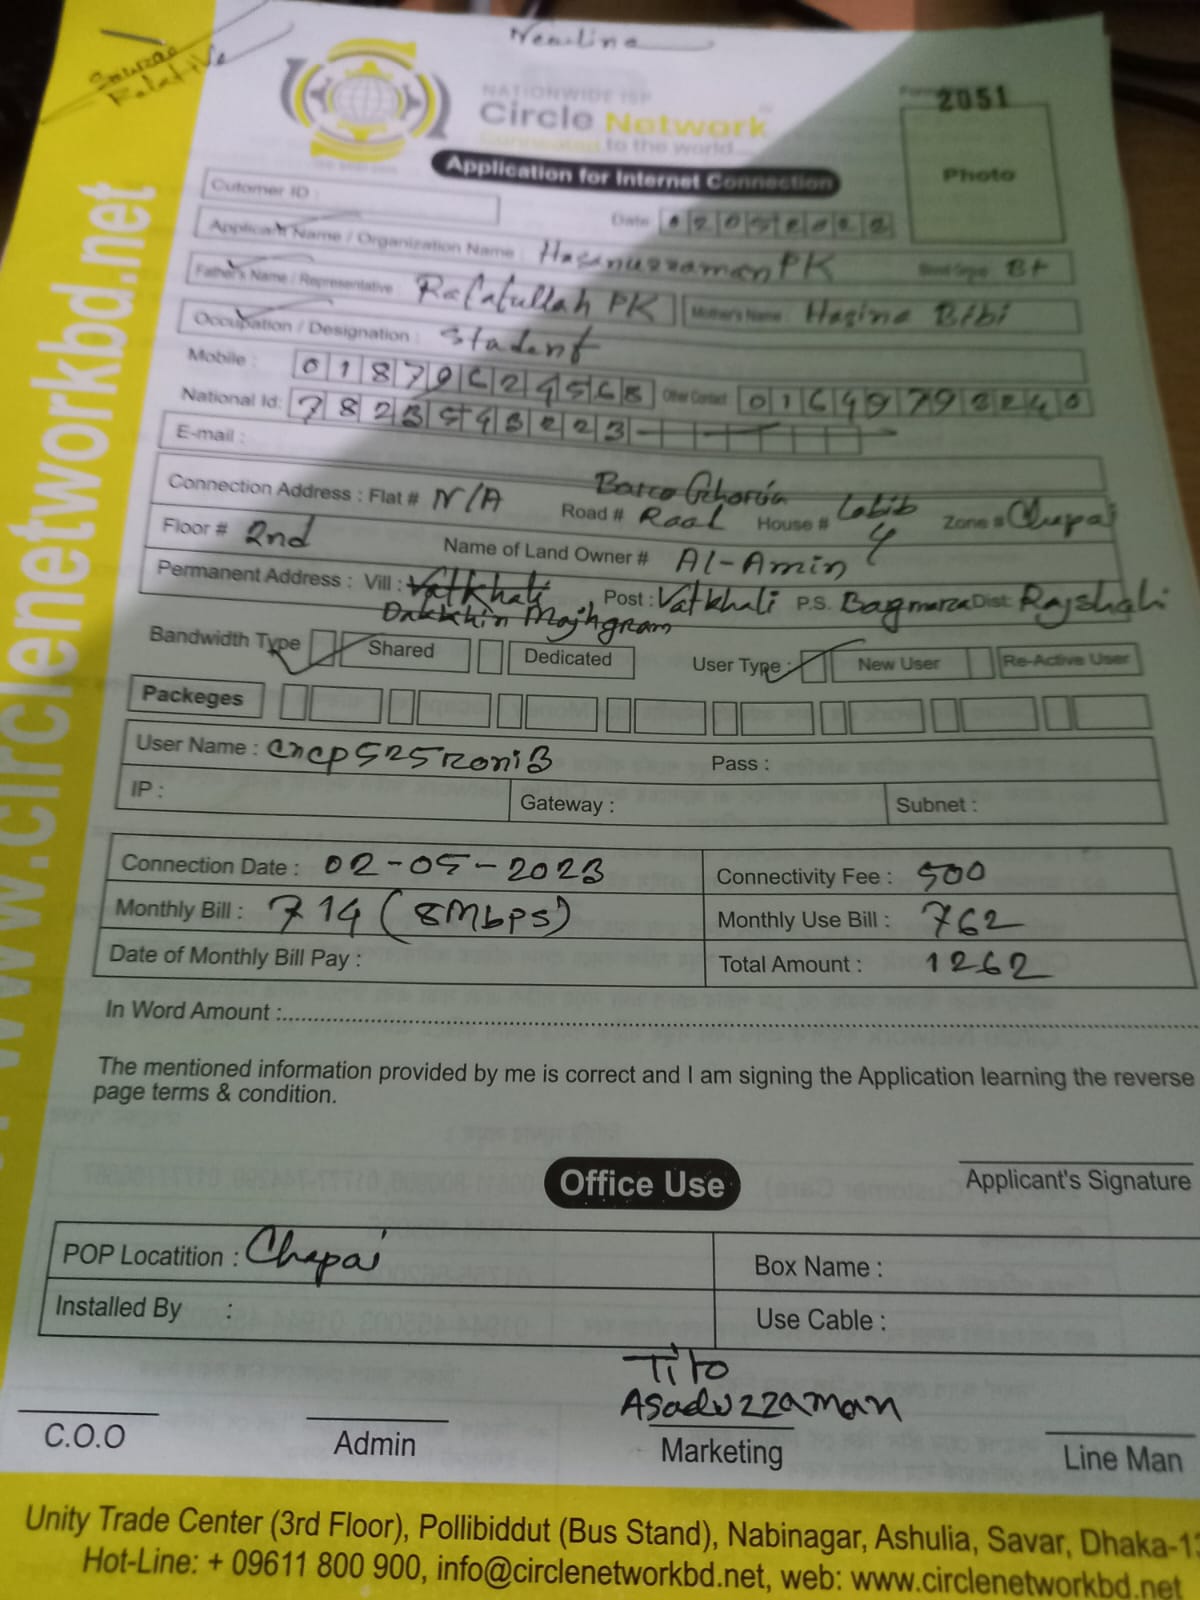 New line
Relative
NATIONWIDE ISP
Circle Network
Connected to the world
Form 2051
Photo
Application for Internet Connection
Cutomer ID :
Date 02052022
Applicant Name / Organization Name : Hasanuzzaman PK Blood Group B+
Father's Name / Representative : Rafatullah PK Mother's Name : Hasina Bibi
Occupation / Designation : Student
Mobile : 01879624568 Other Contact 01649798240
National Id: 7823543223
E-mail :
Connection Address : Flat # N/A Road # Road House # Labib Zone # Chapai
Floor # 2nd Name of Land Owner # Al-Amin
Permanent Address : Vill : Vatkhali Post : Vatkhali P.S. Bagmara Dist: Rajshahi
Dakkhin Majhgram
Bandwidth Type Shared Dedicated User Type : New User Re-Active User
Packeges
User Name : cncp525roniB Pass :
IP : Gateway : Subnet :
Connection Date : 02-05-2023 Connectivity Fee : 500
Monthly Bill : 714 (8Mbps) Monthly Use Bill : 762
Date of Monthly Bill Pay : Total Amount : 1262
In Word Amount :
The mentioned information provided by me is correct and I am signing the Application learning the reverse
page terms & condition.
Applicant's Signature
Office Use
POP Locatition : Chapai Box Name :
Installed By : Use Cable :
Tito
Asaduzzaman
C.O.O Admin Marketing Line Man
Unity Trade Center (3rd Floor), Pollibiddut (Bus Stand), Nabinagar, Ashulia, Savar, Dhaka-13
Hot-Line: + 09611 800 900, info@circlenetworkbd.net, web: www.circlenetworkbd.net
www.circlenetworkbd.net